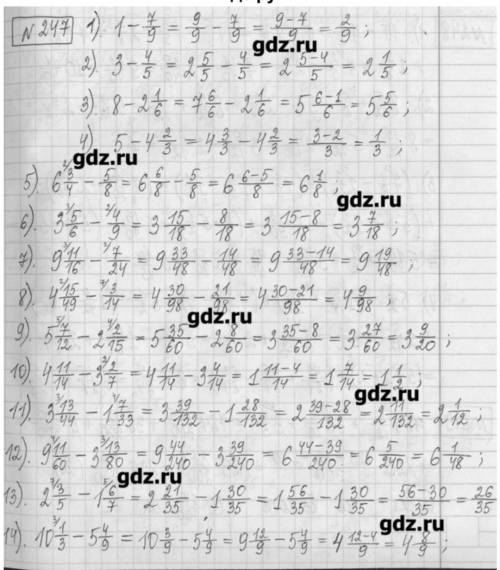 №247 1) 1 - 7/9 = 9/9 - 7/9 = (9-7)/9 = 2/9 ;
gdz.ru
2) 3 - 4/5 = 2 5/5 - 4/5 = 2 (5-4)/5 = 2 1/5 ;
3) 8 - 2 1/6 = 7 6/6 - 2 1/6 = 5 (6-1)/6 = 5 5/6 ;
4) 5 - 4 2/3 = 4 3/3 - 4 2/3 = (3-2)/3 = 1/3 ;
gdz.ru
5) 6 ²⁾3/4 - 5/8 = 6 6/8 - 5/8 = 6 (6-5)/8 = 6 1/8 ;
gdz.ru
6) 3 ³⁾5/6 - ²⁾4/9 = 3 15/18 - 8/18 = 3 (15-8)/18 = 3 7/18 ;
7) 9 ³⁾11/16 - ²⁾7/24 = 9 33/48 - 14/48 = 9 (33-14)/48 = 9 19/48 ;
8) 4 ²⁾15/49 - ⁷⁾3/14 = 4 30/98 - 21/98 = 4 (30-21)/98 = 4 9/98 ;
gdz.ru
9) 5 ⁵⁾7/12 - 2 ⁴⁾2/15 = 5 35/60 - 2 8/60 = 3 (35-8)/60 = 3 27/60 = 3 9/20 ;
10) 4 11/14 - 3 ²⁾2/7 = 4 11/14 - 3 4/14 = 1 (11-4)/14 = 1 7/14 = 1 1/2 ;
gdz.ru
11) 3 ³⁾13/44 - 1 ⁴⁾7/33 = 3 39/132 - 1 28/132 = 2 (39-28)/132 = 2 11/132 = 2 1/12 ;
12) 9 ⁴⁾11/60 - 3 ³⁾13/80 = 9 44/240 - 3 39/240 = 6 (44-39)/240 = 6 5/240 = 6 1/48 ;
gdz.ru
13) 2 ⁷⁾3/5 - 1 ⁵⁾6/7 = 2 21/35 - 1 30/35 = 1 56/35 - 1 30/35 = (56-30)/35 = 26/35
gdz.ru
14) 10 ³⁾1/3 - 5 4/9 = 10 3/9 - 5 4/9 = 9 12/9 - 5 4/9 = 4 (12-4)/9 = 4 8/9 ;